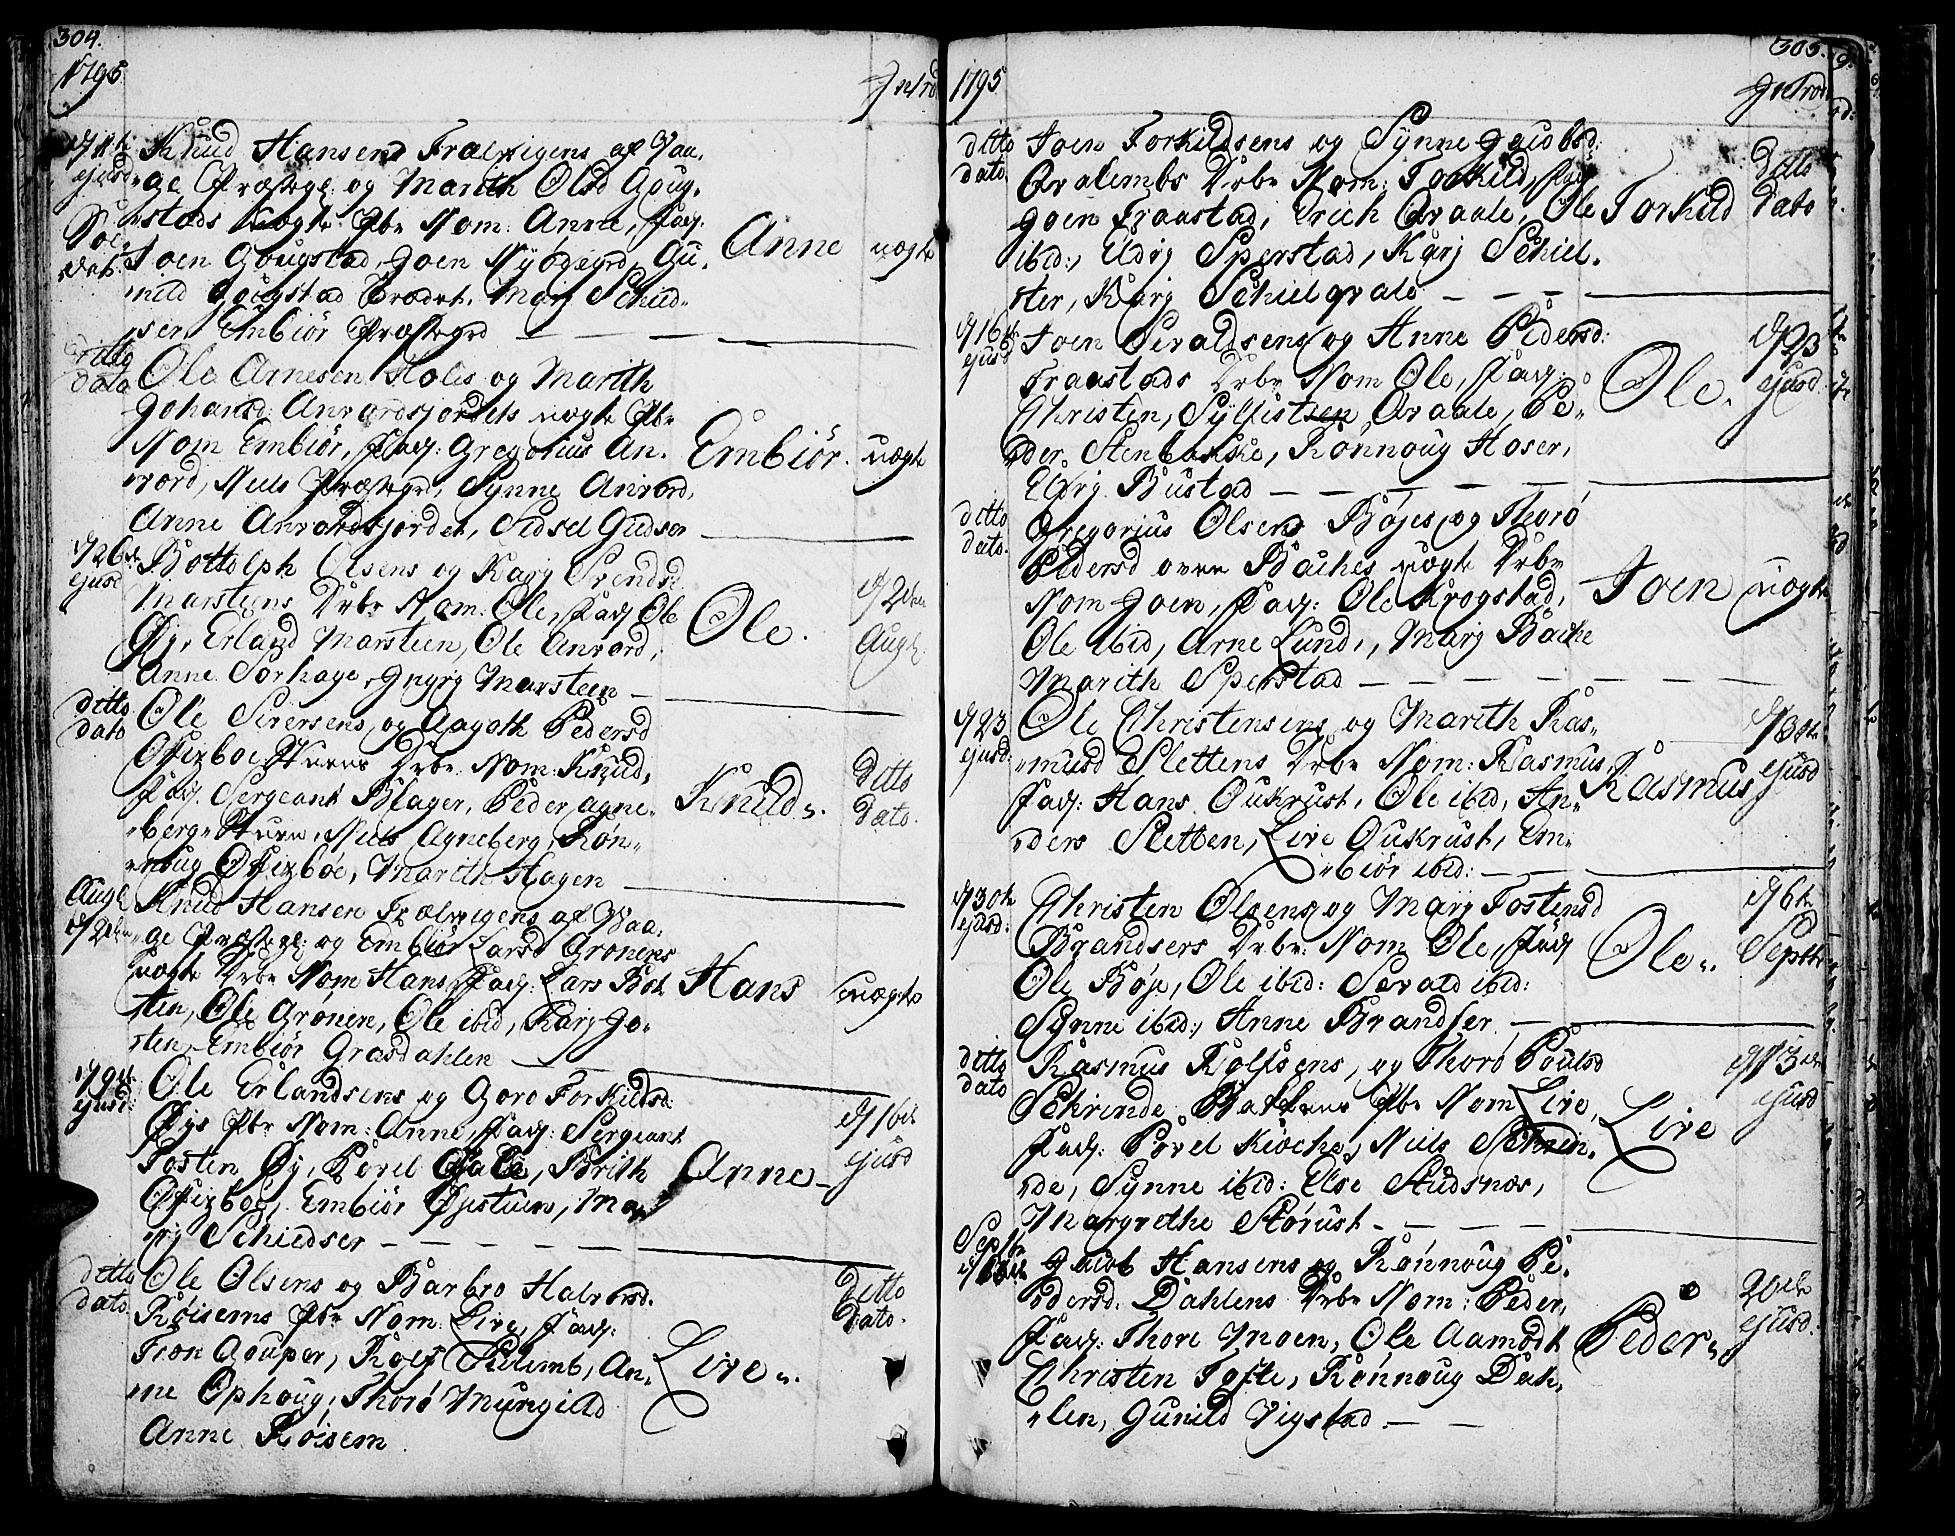 304.
1795
Introd
ejusd
Knud Hansens Frælvigens af Vaa,
ge Præstegl: og Marith Olsd Goug,
stads uægte Pbr Nom: Anne, Fad:
Joen Gougstad, Joen Nyôegrd, Gu,
nild Gougstad Brædet, Marj Schied,
ser, Embiör Præstegrd
Anne
uægte
ditto
dato
Ole Arnesen Holes og Marith
Johansd: Anvordsjordets uægte Pbr
Nom Embiör, Fad: Gregorius An,
vord, Niels Præstegrd, Synne Anvord,
Anne Anvordsjordet, Sidsel Gudser
Embiör.
uægte
d/26de
ejusd
Bottolph Olsens og Karj Svendsd:
Marsteins Drbr Nom: Ole, Fad: Ole
Øy, Erland Marsteen, Ole Anvord,
Anne Sorhage, Marsteen
Ole.
d/2den
Augt.
ditto
dato
Ole Siversens og Aagoth Pedersd
Drbr: Nom: Knud,
Fad: Sergeant Blager, Peder Agne,
berg, Niels Agneberg, Rön,
noug, Marith Hagen
Knud.
ditto
dato.
Augt.
d/2den
Knud Hansen Frælvigens af Vaa,
ge Præstegl: og Embiör Larsd Grönens
uægte Drbr Nom Hans, Fad: Lars Bot,
ten, Ole Grönen, Ole ibid, Karj Jo,
sten, Embiör Grasdahlen
Hans
uægte
d/9de
ejusd:
Ole Erlandsens og Goro Torkildsd:
Øys Pbr Nom: Anne, Fad: Sergeant
Tosten Øy, Povel, Brith
Embiör, Ma,
rj Schiedser
Anne
d/16de
ejusd
ditto
dato
Ole Olsens og Barbro Halvorsd.
Röisems Pbr Nom: Live, Fad:
Tron Gouper, Rolf, An,
ne Ophoug, Thorö Mungild
Anne Röisem
Live.
ditto
dato.
305.
1795
Introd
ditto
dato
Joen Torkildsens og Synne Jacobsd:
Drbr Nom: Torkild, Fad:
Joen Fraastad, Erich Qvaale, Ole
ibid:, Eldrj Sperstad, Karj Schiel,
ster, Karj Schielqvale
Torkild
ditto
dato
d/16de
ejusd
Joen Sevaldsens og Anne Pedersd:
Fraastads Drbr Nom Ole, Fad:
Christen, Syllfistsen Qvaale, Pe,
der Stenbakke, Rönnoug Hoser,
Eldrj Bustad
Ole.
d/23
ejusd.
ditto
dato.
Gregorius Olsens Böjes og Thorö
Pedersd Baches uægte Drbr
Nom Joen, Fad: Ole Krogstad,
Ole ibid, Arne Lund, Marj Bache
Marith Sperstad
Joen
uægte
d/23
ejusd:
Ole Christensens og Marith Ras,
musd Slettens Drbr Nom: Rasmus,
Fad: Hans Oukrust, Ole ibid, An,
ders Sletten, Live Oukrust, Em,
biör ibid:
Rasmus
d/30te
ejusd
d/30te
ejusd:
Christen Olsens og Marj Tostensd
Brandsers Drbr: Nom Ole, Fad
Ole Böje, Ole ibid: Sevald ibid:
Synne ibid:, Anne Brandser
Ole.
d/6te
Septbr
ditto
dato
Rasmus Rolfsens, og Thorö Poulsd
Schrinde Pbr Nom Live,
Fad: Povel Kioche, Niels Schrin,
de, Synne ibid: Else Studsnæs,
Margrethe Störust
Live
d/13de
ejusd
Septbr
Jacob Hansens og Rönnoug Pe,
dersd: Dahlens Drbr Nom: Peder,
Fad: Thore Moen, Ole Aamodt
Christen Tofte, Rönnoug Dah,
len, Gunild Vigstad
Peder.
20de
ejusd.